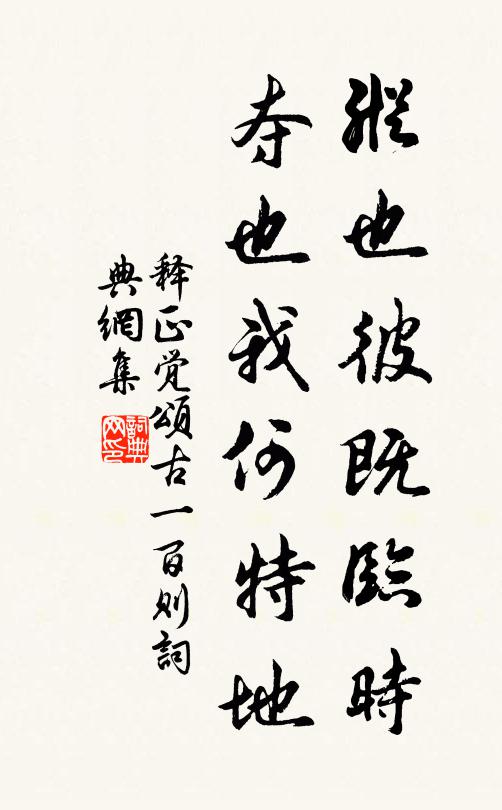 縱也彼既臨時
夺也我何特地
释正覚頌古一百则詞
典網集
詞典
网印